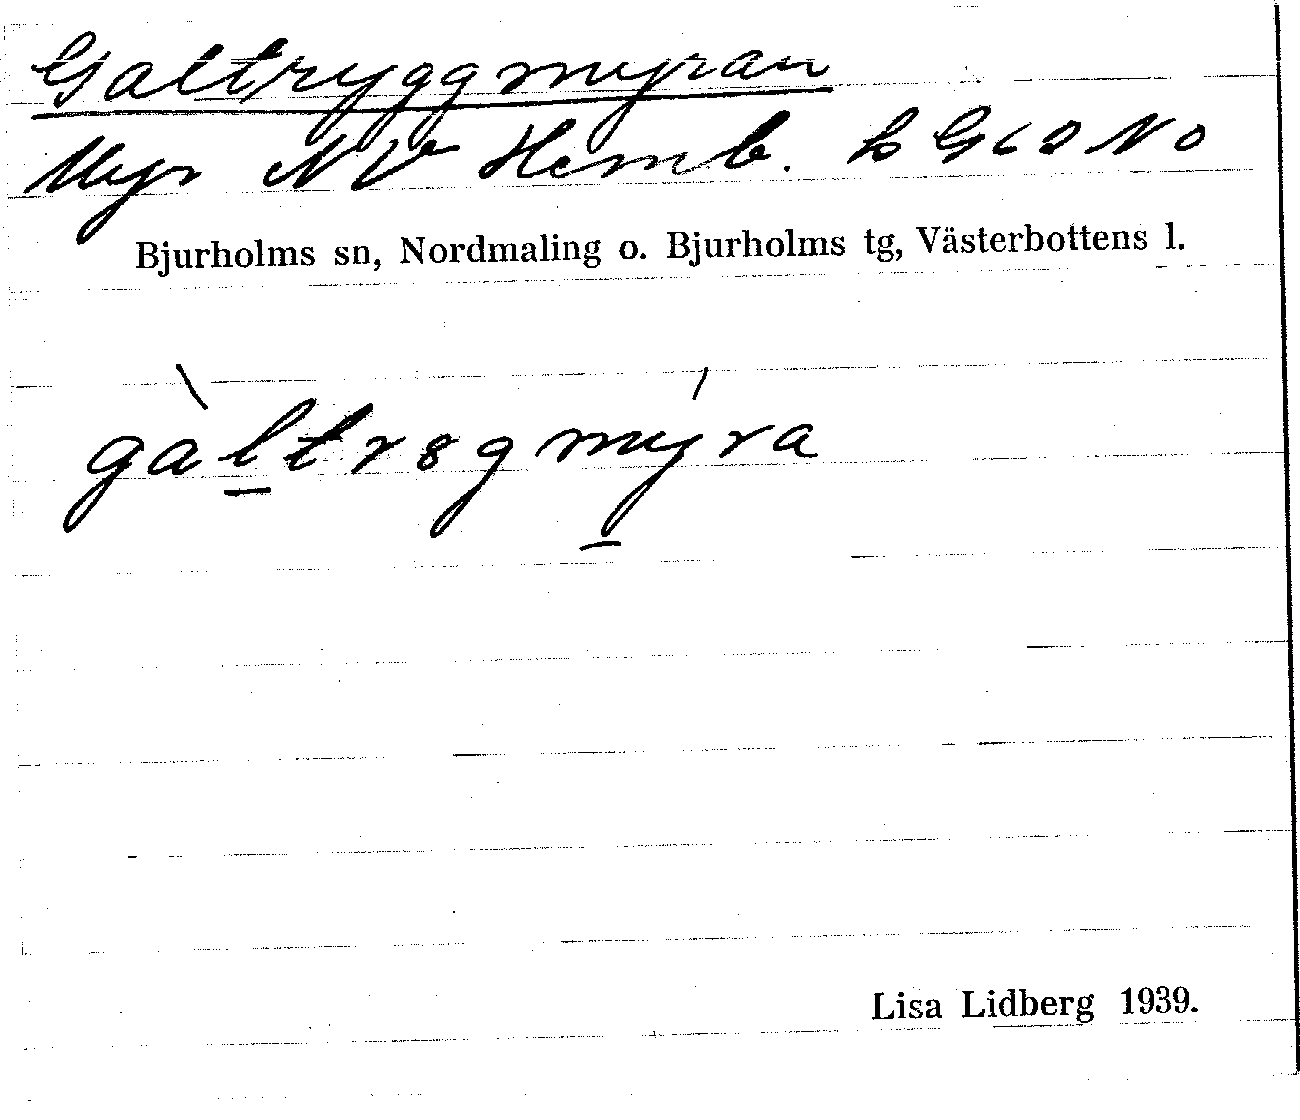 Galtryggmyran
Myr NV Hemb.
Bjurholms sn, Nordmaling o. Bjurholms tg, Västerbottens l.
gàltrsgmýra
Lisa Lidberg 1939.